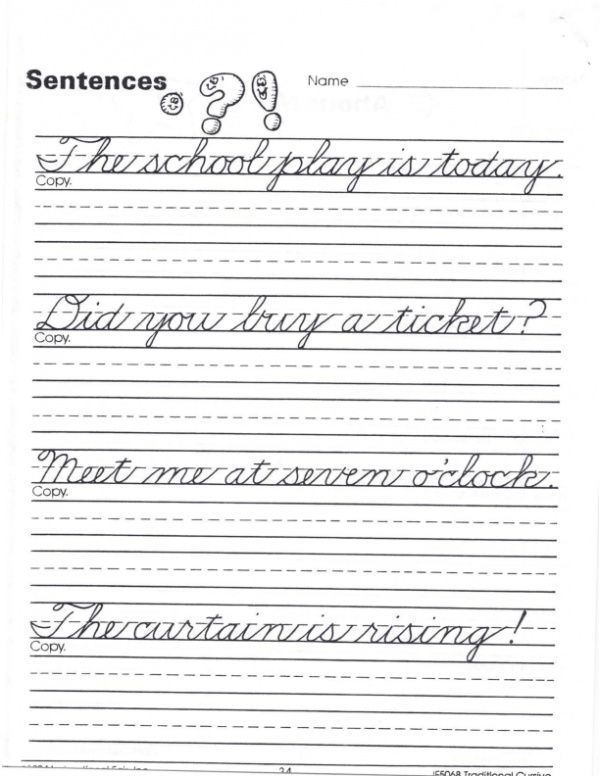 Sentences
Name
The school play is today.
Copy.
Did you buy a ticket?
Copy.
Meet me at seven o'clock.
Copy.
The curtain is rising!
Copy.
34 IF5068 Traditional Cursive